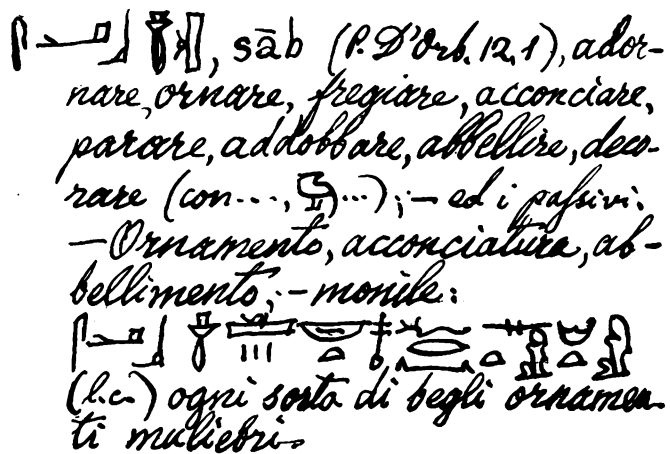 𓋴𓂝𓃀, sāb (P. D'Orb. 12, 1), ador-
nare, ornare, fregiare, acconciare,
parare, addobbare, abbellire, deco-
rare (con..., 𓅓...);— ed i paſsivi:
— Ornamento, acconciatura, ab-
bellimento;— monile:
𓋴𓂝𓃀
(l.c.) ogni sorta di begli ornamen-
ti muliebri.